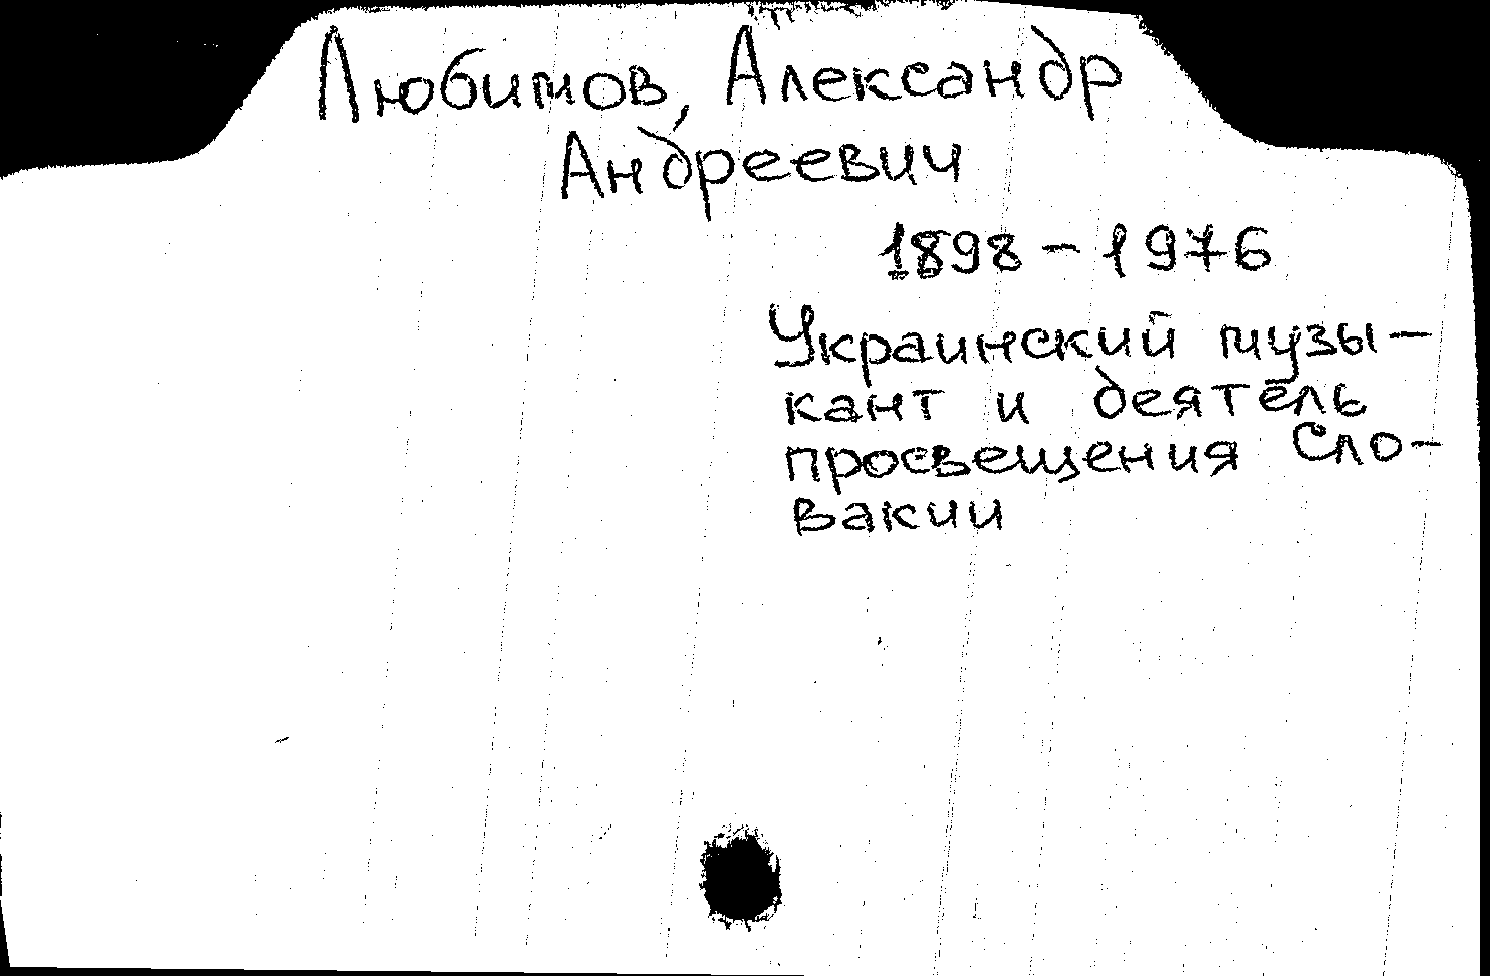 Любимов, Александр
Андреевич
1898 – 1976
Украинский музы–
кант и деятель
просвещения Сло–
вакии